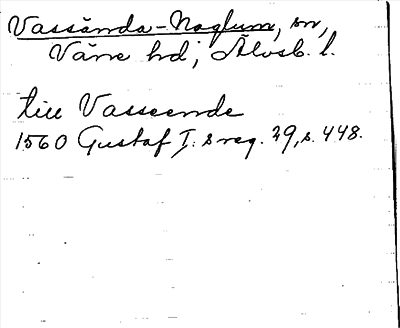 Vassända-Naglum, sn,
Väne hd, Älvsb. l.
till Vasseende
1560 Gustaf I. s reg. 29, s. 448.